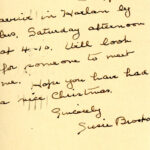 arrive in Harlan by
bus, Saturday afternoon
at 4:10. Will look
for someone to meet
me. Hope you have had
a nice Christmas.
Sincerely
Susie